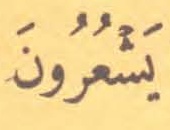 يَشْعُرُونَ